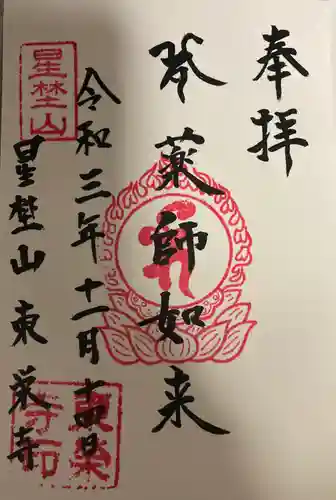 奉拝
薬師如来
令和三年十一月十四日
星埜山東栄寺
星埜山